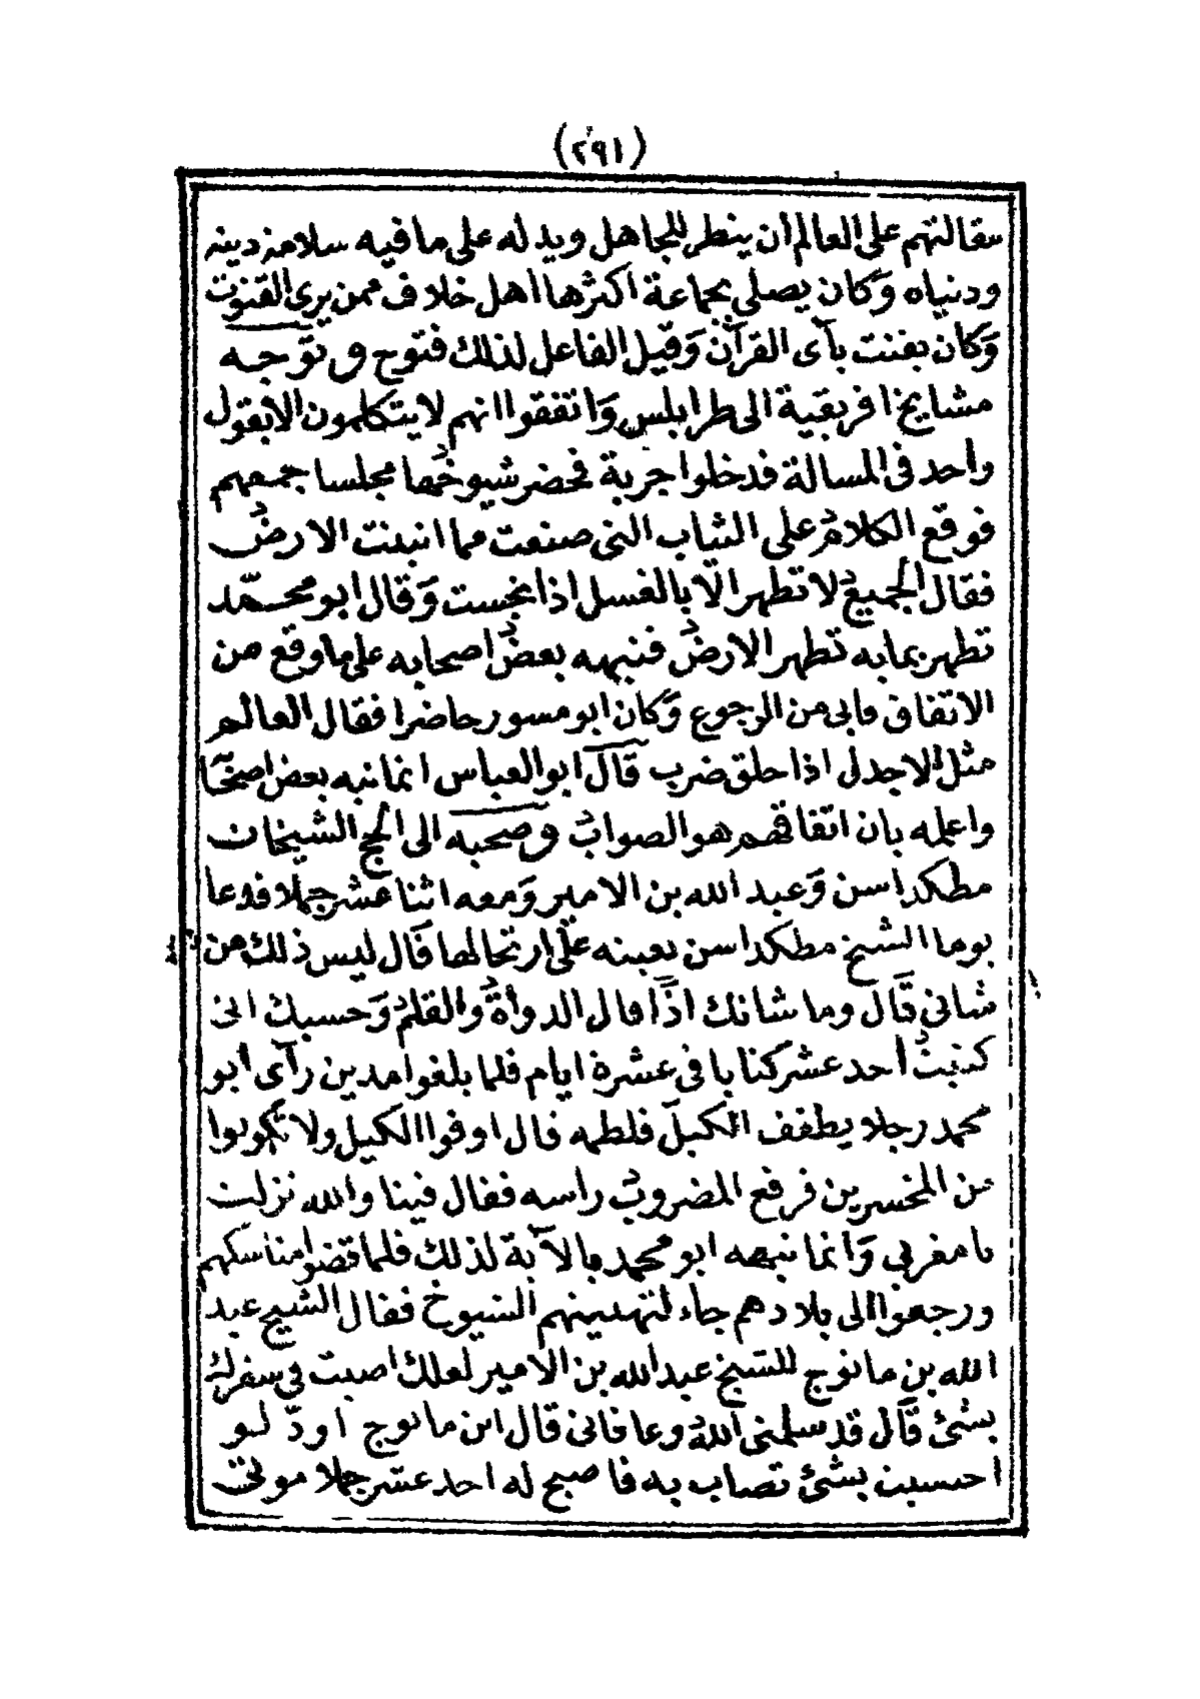 (٢٩١)
مقالتهم على العالم أن ينظر للجاهل ويدله على ما فيه سلامة دينه
ودنياه وَكان يصلي بجماعة اكثرها اهل خلاف ممن يرى القنوت
وَكان يقنت بآى القرآن وَقيل الفاعل لذلك فتوح وتوّجه
مشايخ افريقية الى طرابلس وَاتفقوا انهم لا يتكلمون الا بقول
واحد فى المسالة فدخلوا جربة فحضر شيوخها مجلسا جمعهم
فوقع الكلام على الثياب التى صنعت مما انبتت الارض
فقال الجميع لا تطهر الّا بالغسل اذا نجست وَقال ابو محمّد
تطهر بما به تطهر الارض فنبهه بعض اصحابه على ما وقع من
الاتفاق فابى من الرجوع وَكان ابو مسور حاضرا فقال العالم
مثل الاجدل اذا حلق ضرب قال ابو العباس انما نبه بعض اصحابه
واعلمه بان اتفاقهم هو الصواب وصحبه الى الحج الشيخان
مطكداسن وَعبد الله بن الامير وَمعه اثنا عشر جملا فدعا
يوما الشيخ مطكداسن يعينه على ارتحالها قال ليس ذلك من
شانى قال وما شانك اذًا قال الدواة والقلم وَحسبك انى
كتبت أحد عشر كتابا فى عشرة ايام فلما بلغوا مدين رآى ابو
محمد رجلا يطفف الكيل فلطمه فال اوفوا الكيل ولا تكونوا
من المخسرين فرفع المضروب راسه فقال فينا والله نزلت
يا مغربى وَانما نبهه ابو محمد بالآية لذلك فلما قضوا مناسكهم
ورجعوا الى بلادهم جاء لتهنيتهم الشيوخ فقال الشيخ عبد
الله بن مانوج للشيخ عبد الله بن الامير لعلك اصبت فى سفرك
بشئ قال قد سلمنى الله وعافانى قال ابن مانوج اودّ لو
احسيت بشئ تصاب به فاصبح له احد عشر جملا موتى